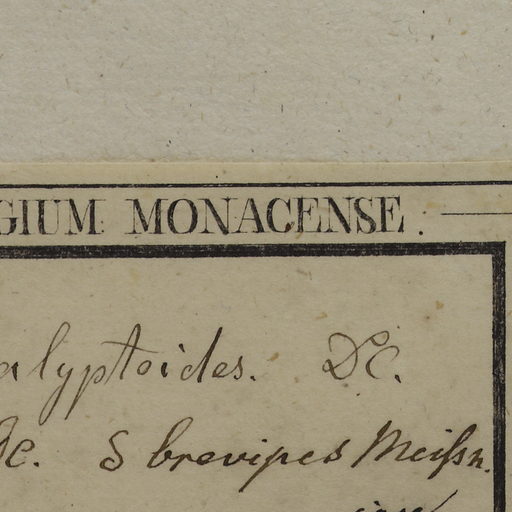 GIUM MONACENSE.
alyptoides. DC.
DC. δ brevipes Meiſsn.